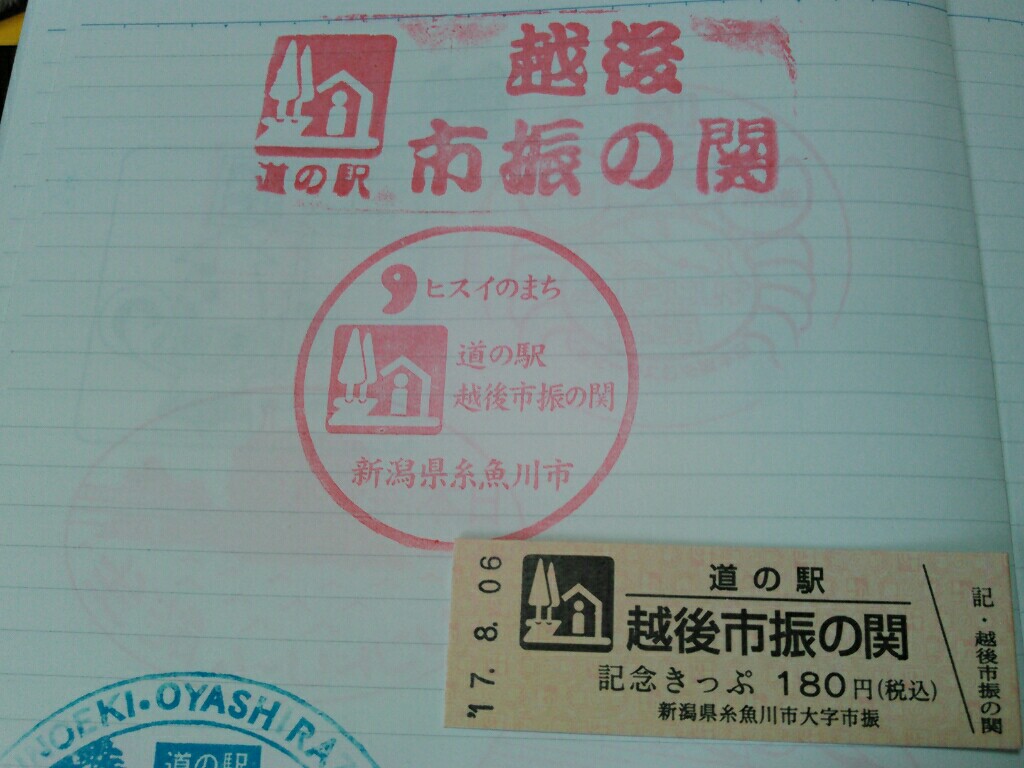 越後
市振の関
道の駅
ヒスイのまち
道の駅
越後市振の関
新潟県糸魚川市
'17. 8. 06
道の駅
越後市振の関
記念きっぷ 180円(税込)
新潟県糸魚川市大字市振
記・越後市振の関
NOEKI.OYASHIRAZ
道の駅